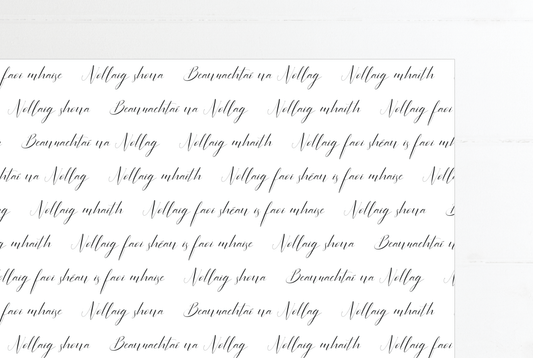 faoi mhaise Nollaig shona Beannachtaí na Nollag Nollaig mhaith
Nollaig shona Beannachtaí na Nollag Nollaig mhaith Nollaig faoi
Beannachtaí na Nollag Nollaig mhaith Nollaig faoi shéan is faoi mh
htaí na Nollag Nollaig mhaith Nollaig faoi shéan is faoi mhaise Noll
g Nollaig mhaith Nollaig faoi shéan is faoi mhaise Nollaig shona B
g mhaith Nollaig faoi shéan is faoi mhaise Nollaig shona Beannachtaí n
ollaig faoi shéan is faoi mhaise Nollaig shona Beannachtaí na Nollag N
faoi mhaise Nollaig shona Beannachtaí na Nollag Nollaig mhaith
Nollaig shona Beannachtaí na Nollag Nollaig mhaith Nollaig faoi